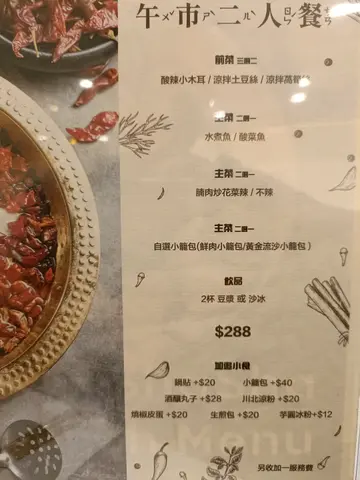 午市二人餐
前菜 三選二
酸辣小木耳 / 涼拌土豆絲 / 涼拌萵筍絲
主菜 二選一
水煮魚 / 酸菜魚
主菜 二選一
腩肉炒花菜辣 / 不辣
主菜 二選一
自選小籠包(鮮肉小籠包/黃金流沙小籠包 )
飲品
2杯 豆漿 或 沙冰
$288
加購小食
鍋貼 +$20 小籠包 +$40
酒釀丸子 +$28 川北涼粉 +$20
燒椒皮蛋 +$20 生煎包 +$20 芋圓冰粉+$12
Menu
另收加一服務費